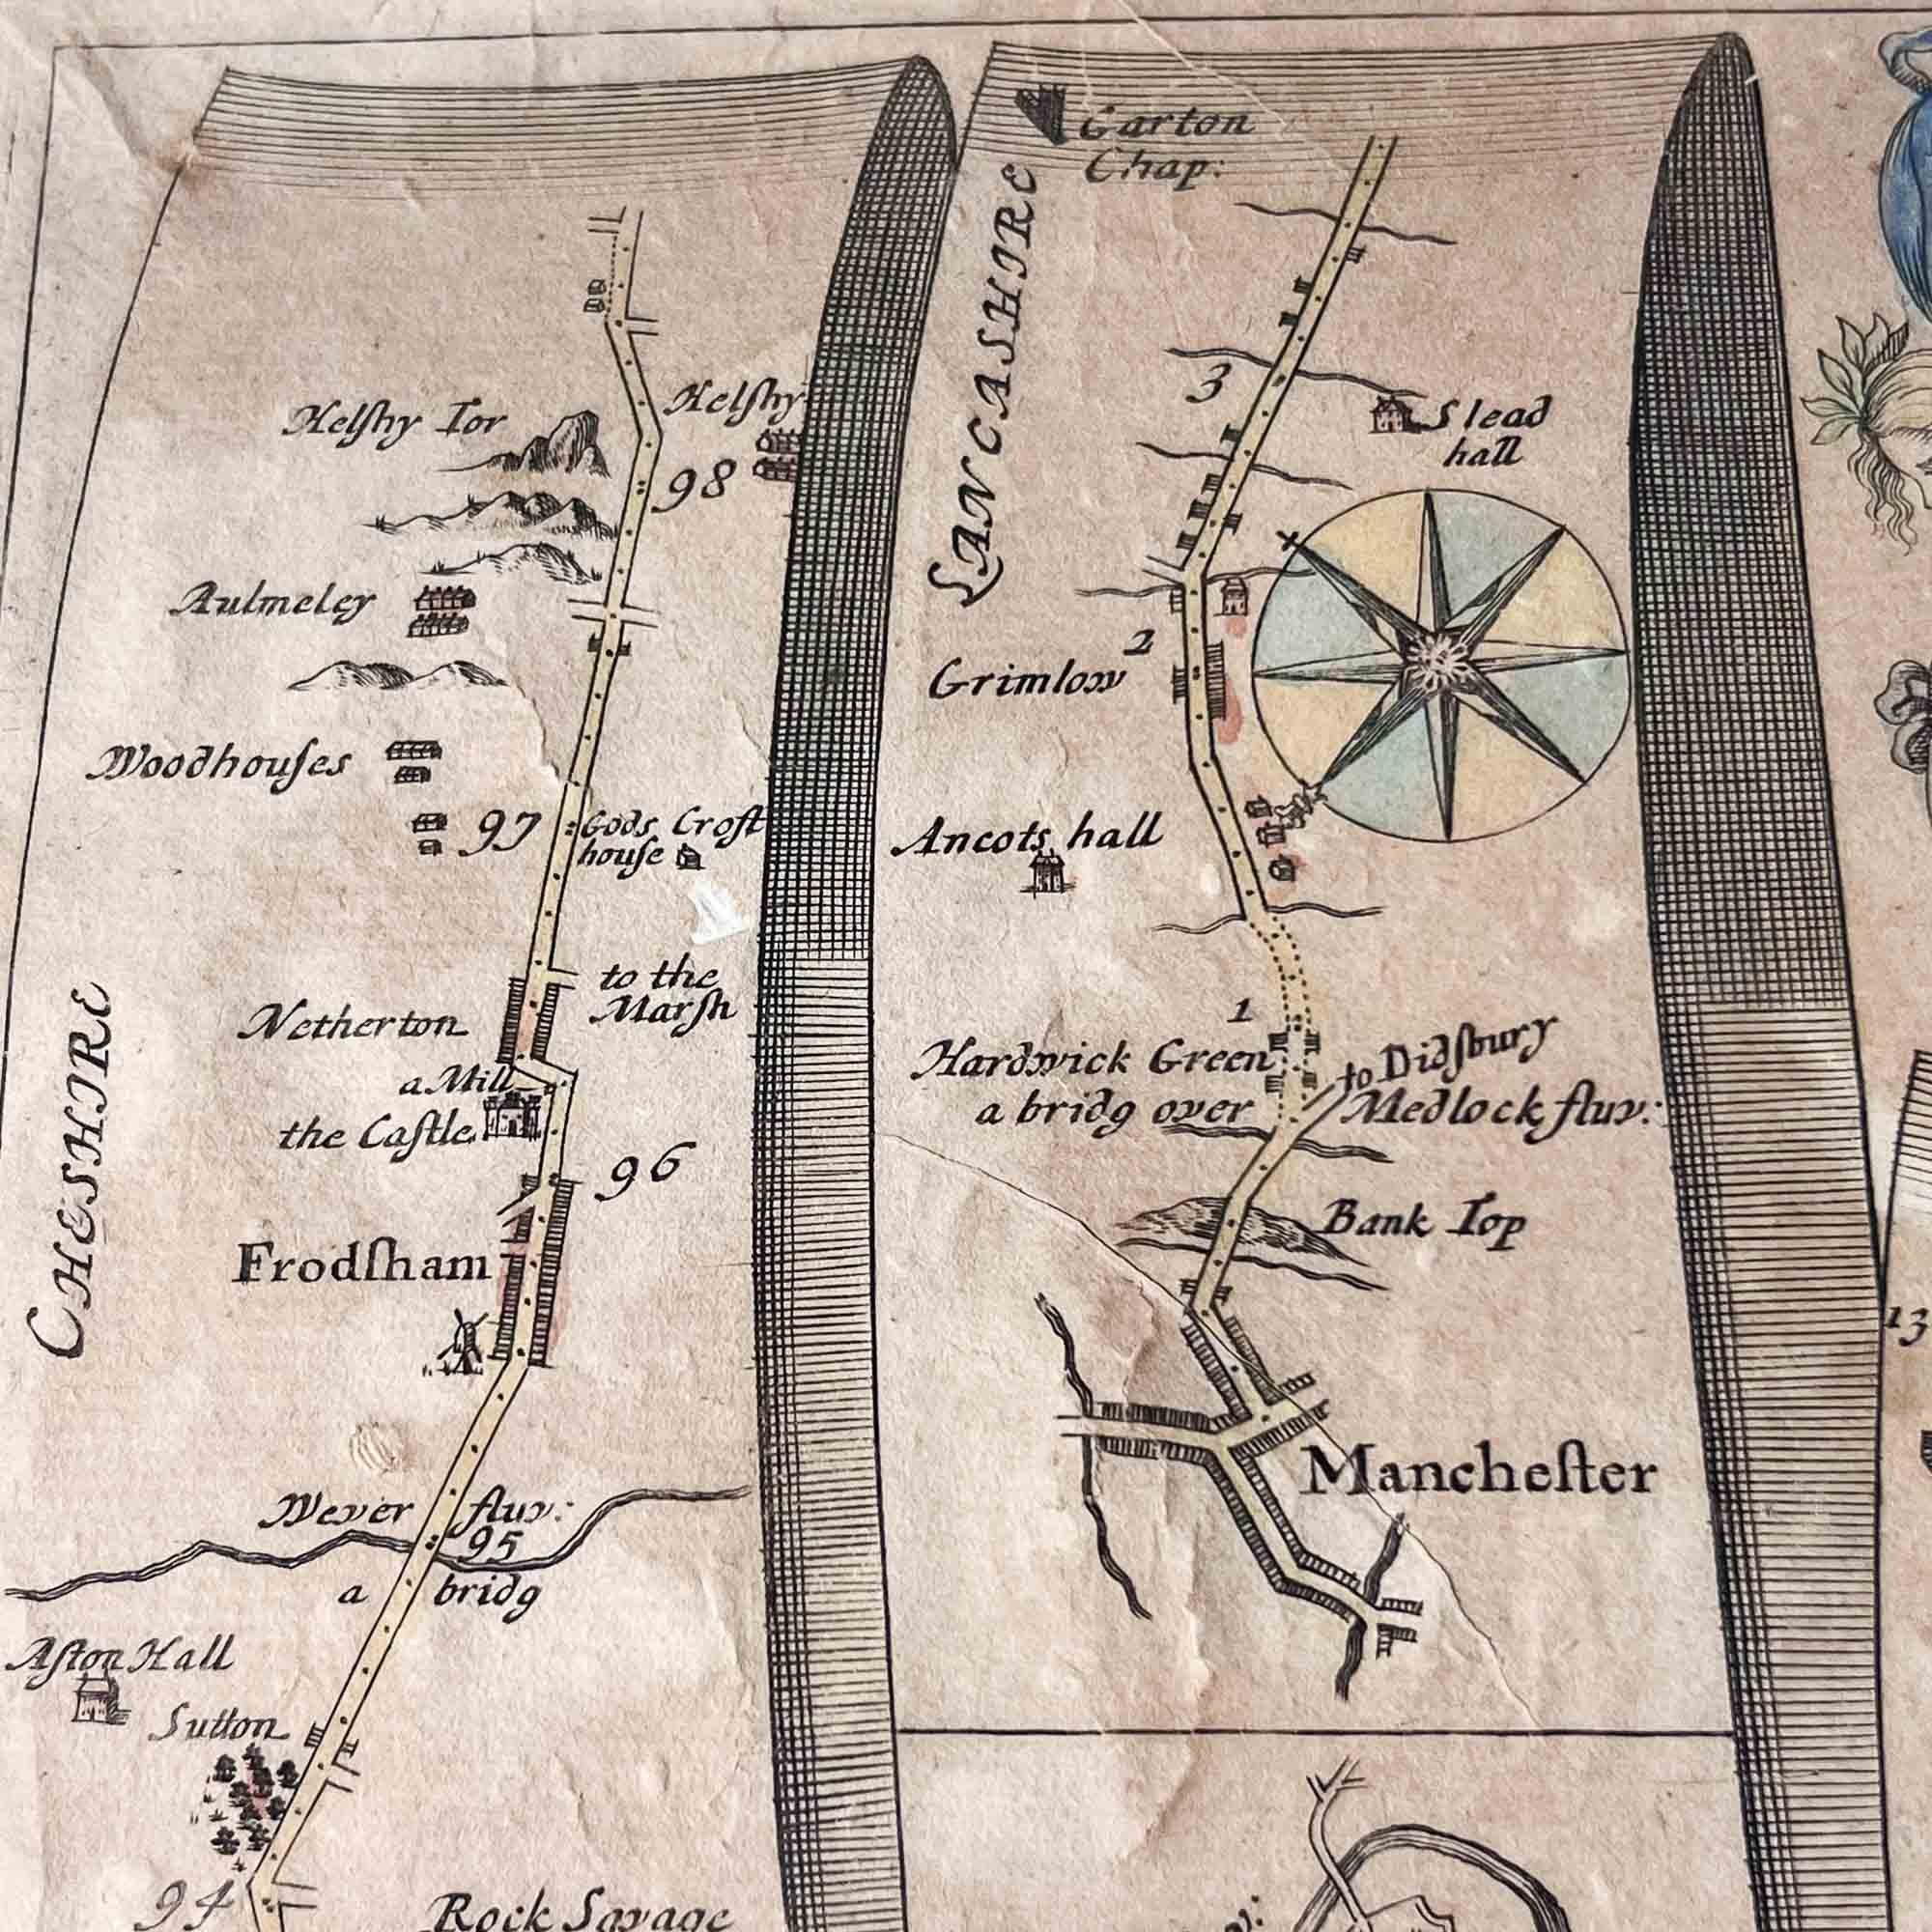 CHESHIRE
Helſby Tor
Helſby
98
Aulmeley
Woodhouſes
97
Gods Croft
houſe
to the
Marſh
Netherton
a Mill
the Caſtle
96
Frodſham
Wever fluv:
95
a bridg
Aſton Hall
Sutton
94
Rock Savage
LANCASHIRE
Garton
Chap:
3
Slead
hall
2
Grimlow
Ancots hall
1
Hardwick Green
to Didſbury
a bridg over
Medlock fluv:
Bank Top
Mancheſter
13